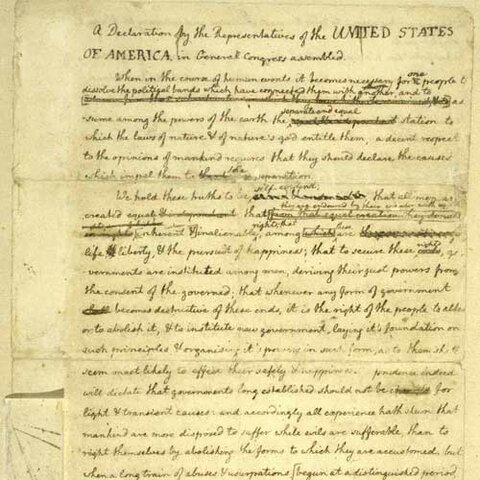 A Declaration by the Representatives of the UNITED STATES
OF AMERICA, in General Congress assembled.
When in the course of human events it becomes necessary for one people t
dissolve the political bands which have connected them with another, and to
as
-sume among the powers of the earth the separate and equal station to
which the laws of nature & of nature's god entitle them, a decent respect
to the opinions of mankind requires that they should declare the causes
which impel them to the separation.
We hold these truths to be self-evident; that all men are
created equal & independent; that from that equal creation they derive
they are endowed by their creator with
rights; that these
inherent & inalienable, among which are
life & liberty, & the pursuit of happiness; that to secure these rights, go
vernments are instituted among men, deriving their just powers from
the consent of the governed; that whenever any form of government
becomes destructive of these ends, it is the right of the people to alter
or to abolish it, & to institute new government, laying it's foundation on
such principles & organising it's powers in such form, as to them sh
seem most likely to effect their safety & happiness. prudence indeed
will dictate that governments long established should not be changed for
light & transient causes: and accordingly all experience hath shewn that
mankind are more disposed to suffer while evils are sufferable, than to
right themselves by abolishing the forms to which they are accustomed. but
when a long train of abuses & usurpations [begun at a distinguished period